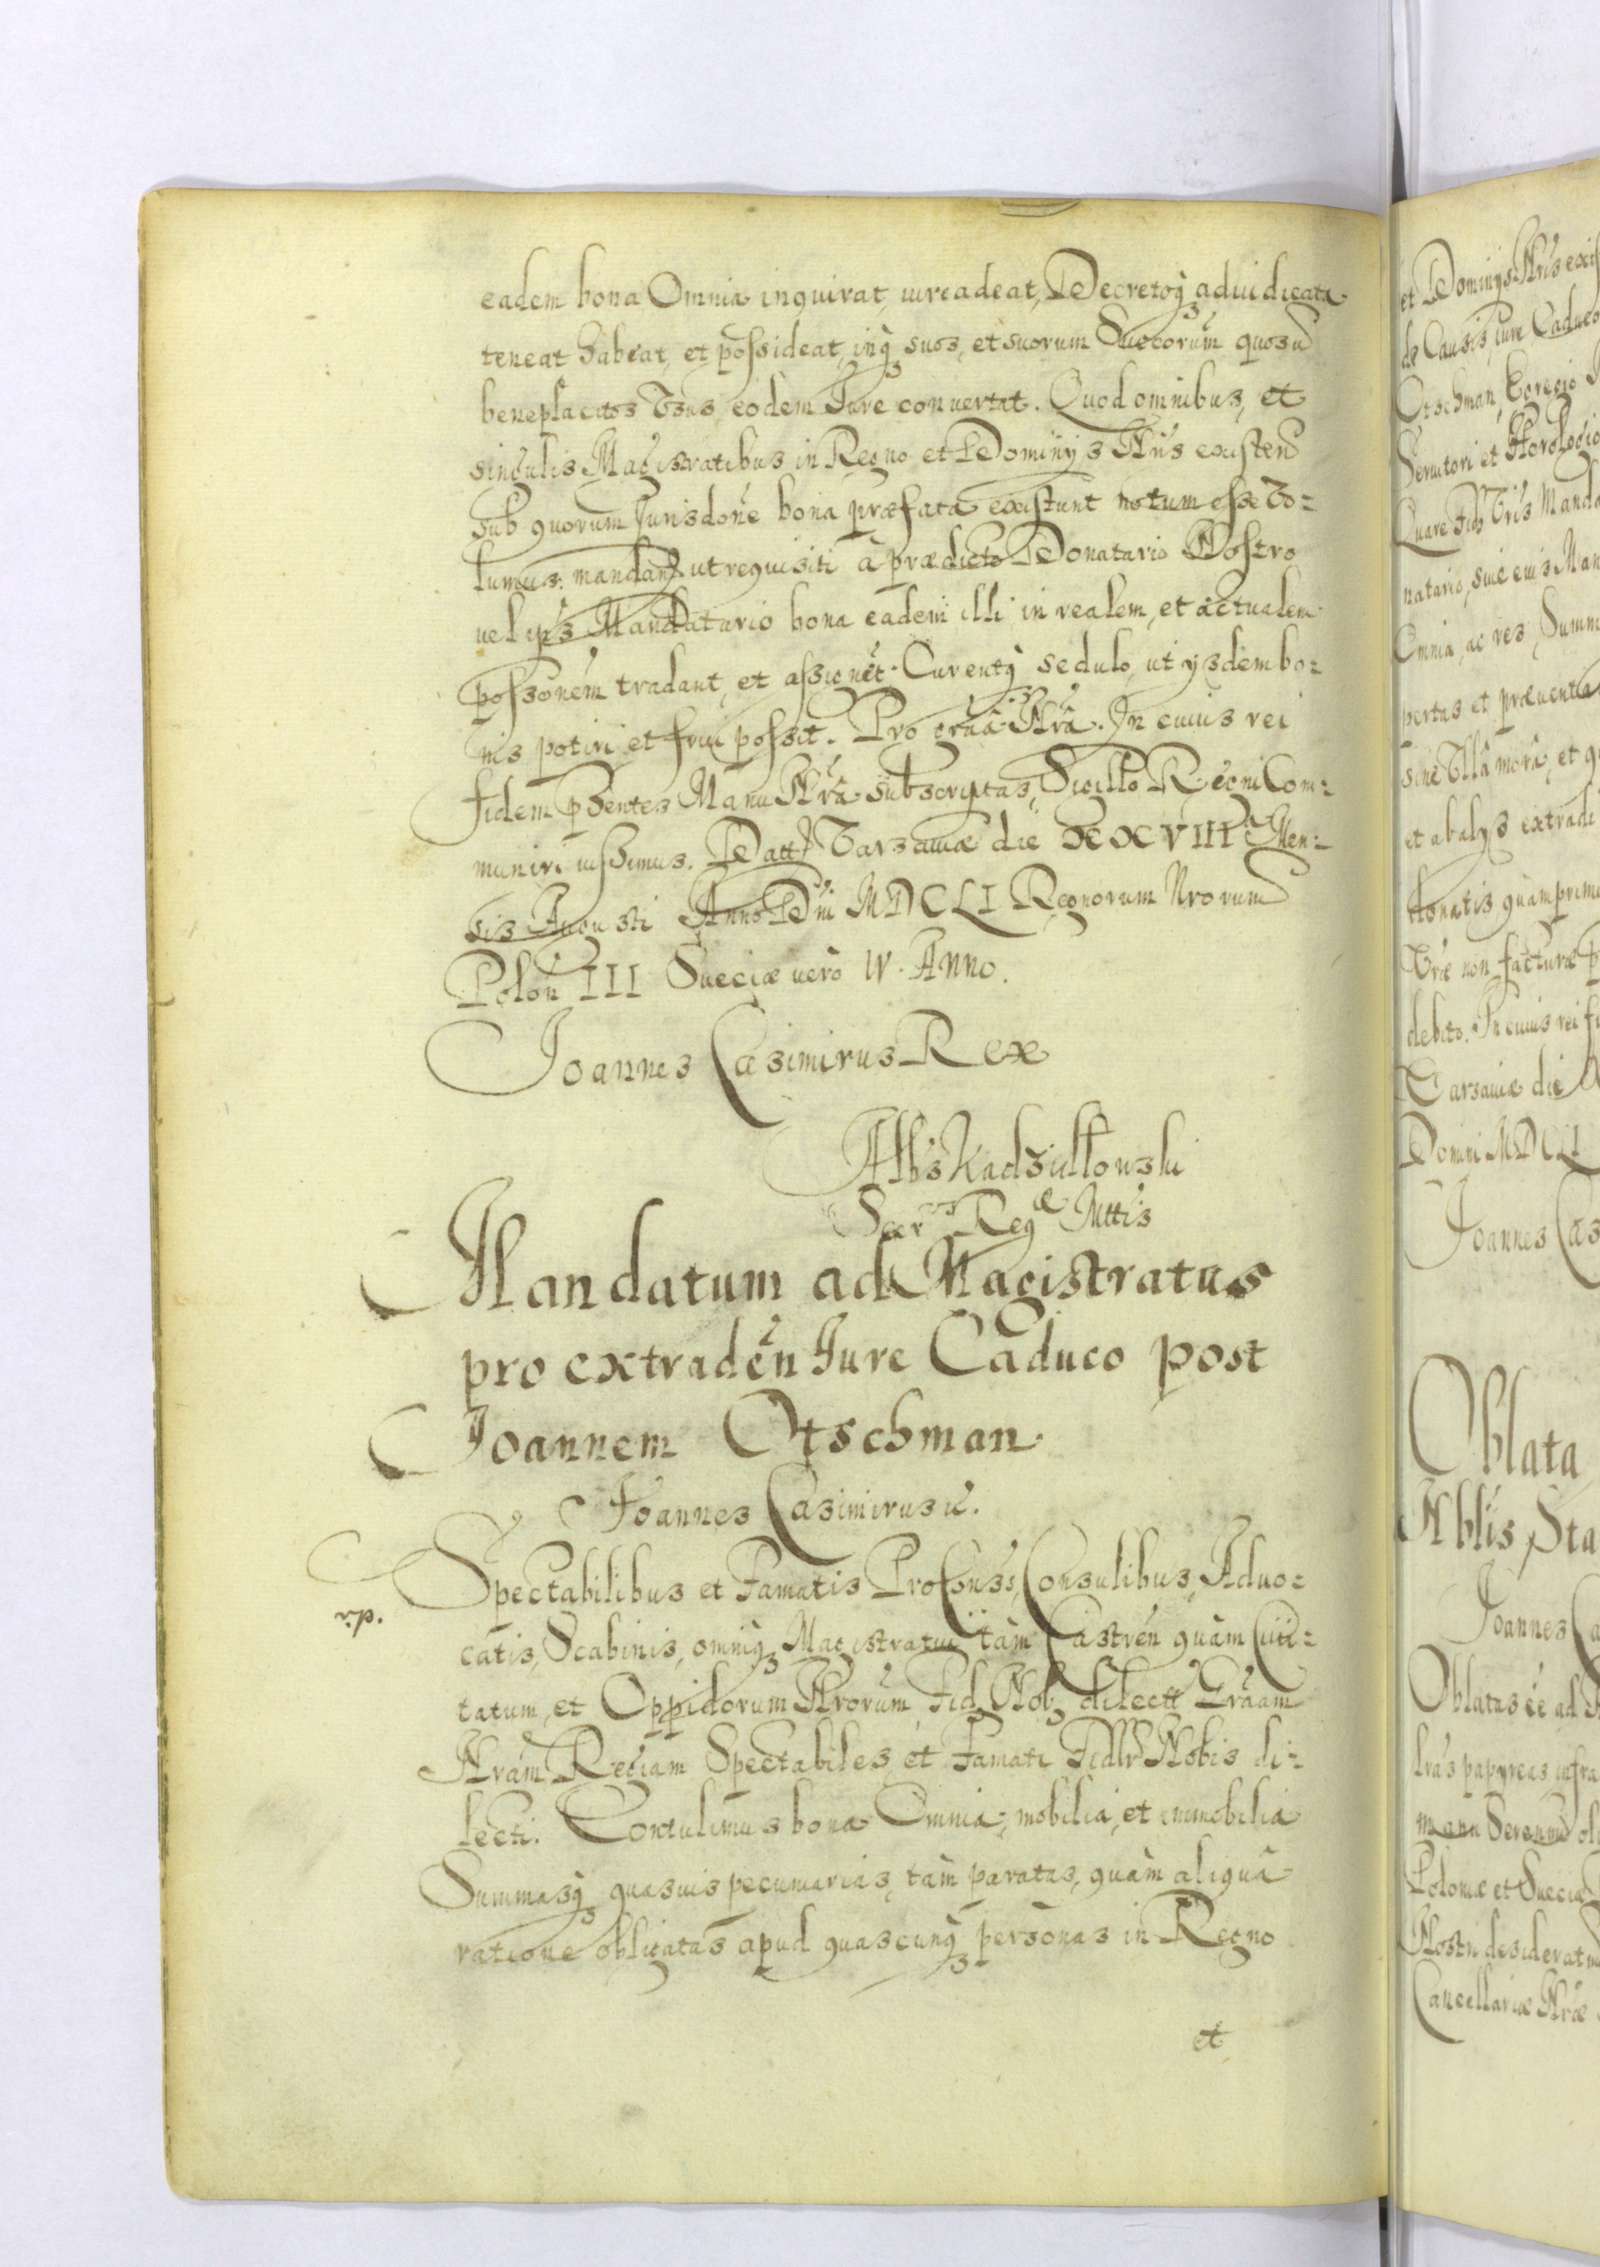 eadem bona Omnia inquirat, iure adeat, Decretoq, adiudicata
teneat habeat, et possideat, inq, suos, et suorum Succorum quosu
beneplacitos Vsus, eodem Iure conuertat. Quod omnibus, et
singulis Magistratibus in Regno et Dominijs Nris existen
sub quorum Iurisdone bona præfata existunt notum esse Vo=
lumus: mandan ut requisiti à prædicto Donatario Nostro
uel ips Mandatario bona eadem illi in realem, et actualem
possonem tradant, et assignet. Curentq sedulo, ut ysdem bo=
nis potiri et frui possit. Pro graâ Nrâ. In cuius rei
fidem psentes Manu Nrâ subscriptas, Sigillo Regni Com=
muniri iussimus. Datt Varsauiæ die XXVIII Men=
sis Augusti Anno Dni MDCLI Regnorum Nrorum
Polon III Sueciæ uerò IV. Anno.
Joannes Casimirus Rex
Albs Kadzidlowski
Secrus Regæ Mttis
Mandatum ad Magistratus
pro extraden Iure Caduco post
Joannem Otschman
Joannes Casimirus ic.
Spectabilibus et Famatis Proconss, Consulibus, Aduo=
catis, Scabinis, omniq, Magistratui tàm Castren quàm Ciui=
tatum, et Oppidorum Nrorum, Fid Nob dilectt Grãam
Nram Regiam Spectabiles, et Famati Fidlr Nobis di=
lecti. Contulimus bona Omnia, mobilia, et immobilia
Summasq, quasuis pecuniarias, tàm paratas, quàm aliqua
ratione obligatas apud quascunq, personas in Regno
et
et Dominijs Nris exis
de Causis, iure Caduco
Otschman, Egregio
Seruitori et Horologio
Quare Fidb Vris Manda
natario, siue eius Man
Omnia, ac res, Summ
pertas et præuenta
sine Vllâ morâ, et q
et ab alijs extradi
donatis quàmprimu
Vræ non facturæ p
debito. In cuius rei fi
Varsauiæ die
Domini MDCLI
Joannes Cas
Oblata
Nblis Sta
Joannes Ca
Oblatas ee ad
lras papyreas infra
manu Serenmi oli
Poloniæ et Sueciæ
Nostri desideratmi
Cancellariæ Nræ